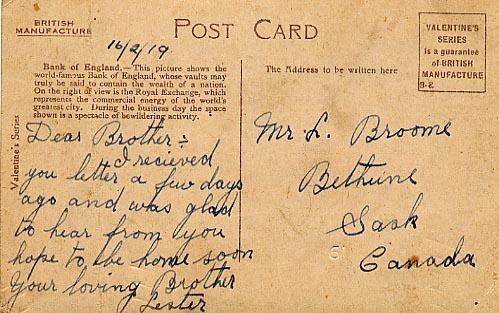 BRITISH
MANUFACTURE
POST CARD
VALENTINE'S
SERIES
is a guarantee
of BRITISH
MANUFACTURE
S-2
16/2/19
Bank of England.—This picture shows the
world-famous Bank of England, whose vaults may
truly be said to contain the wealth of a nation.
On the right of view is the Royal Exchange, which
represents the commercial energy of the world's
greatest city. During the business day the space
shown is a spectacle of bewildering activity.
The Address to be written here
Valentine's Series
Dear Brother:
I recieved
you letter a few days
ago and was glad
to hear from you
hope to be home soon
Your loving Brother
Lester
Mr. L. Broome
Bethune
Sask
Canada